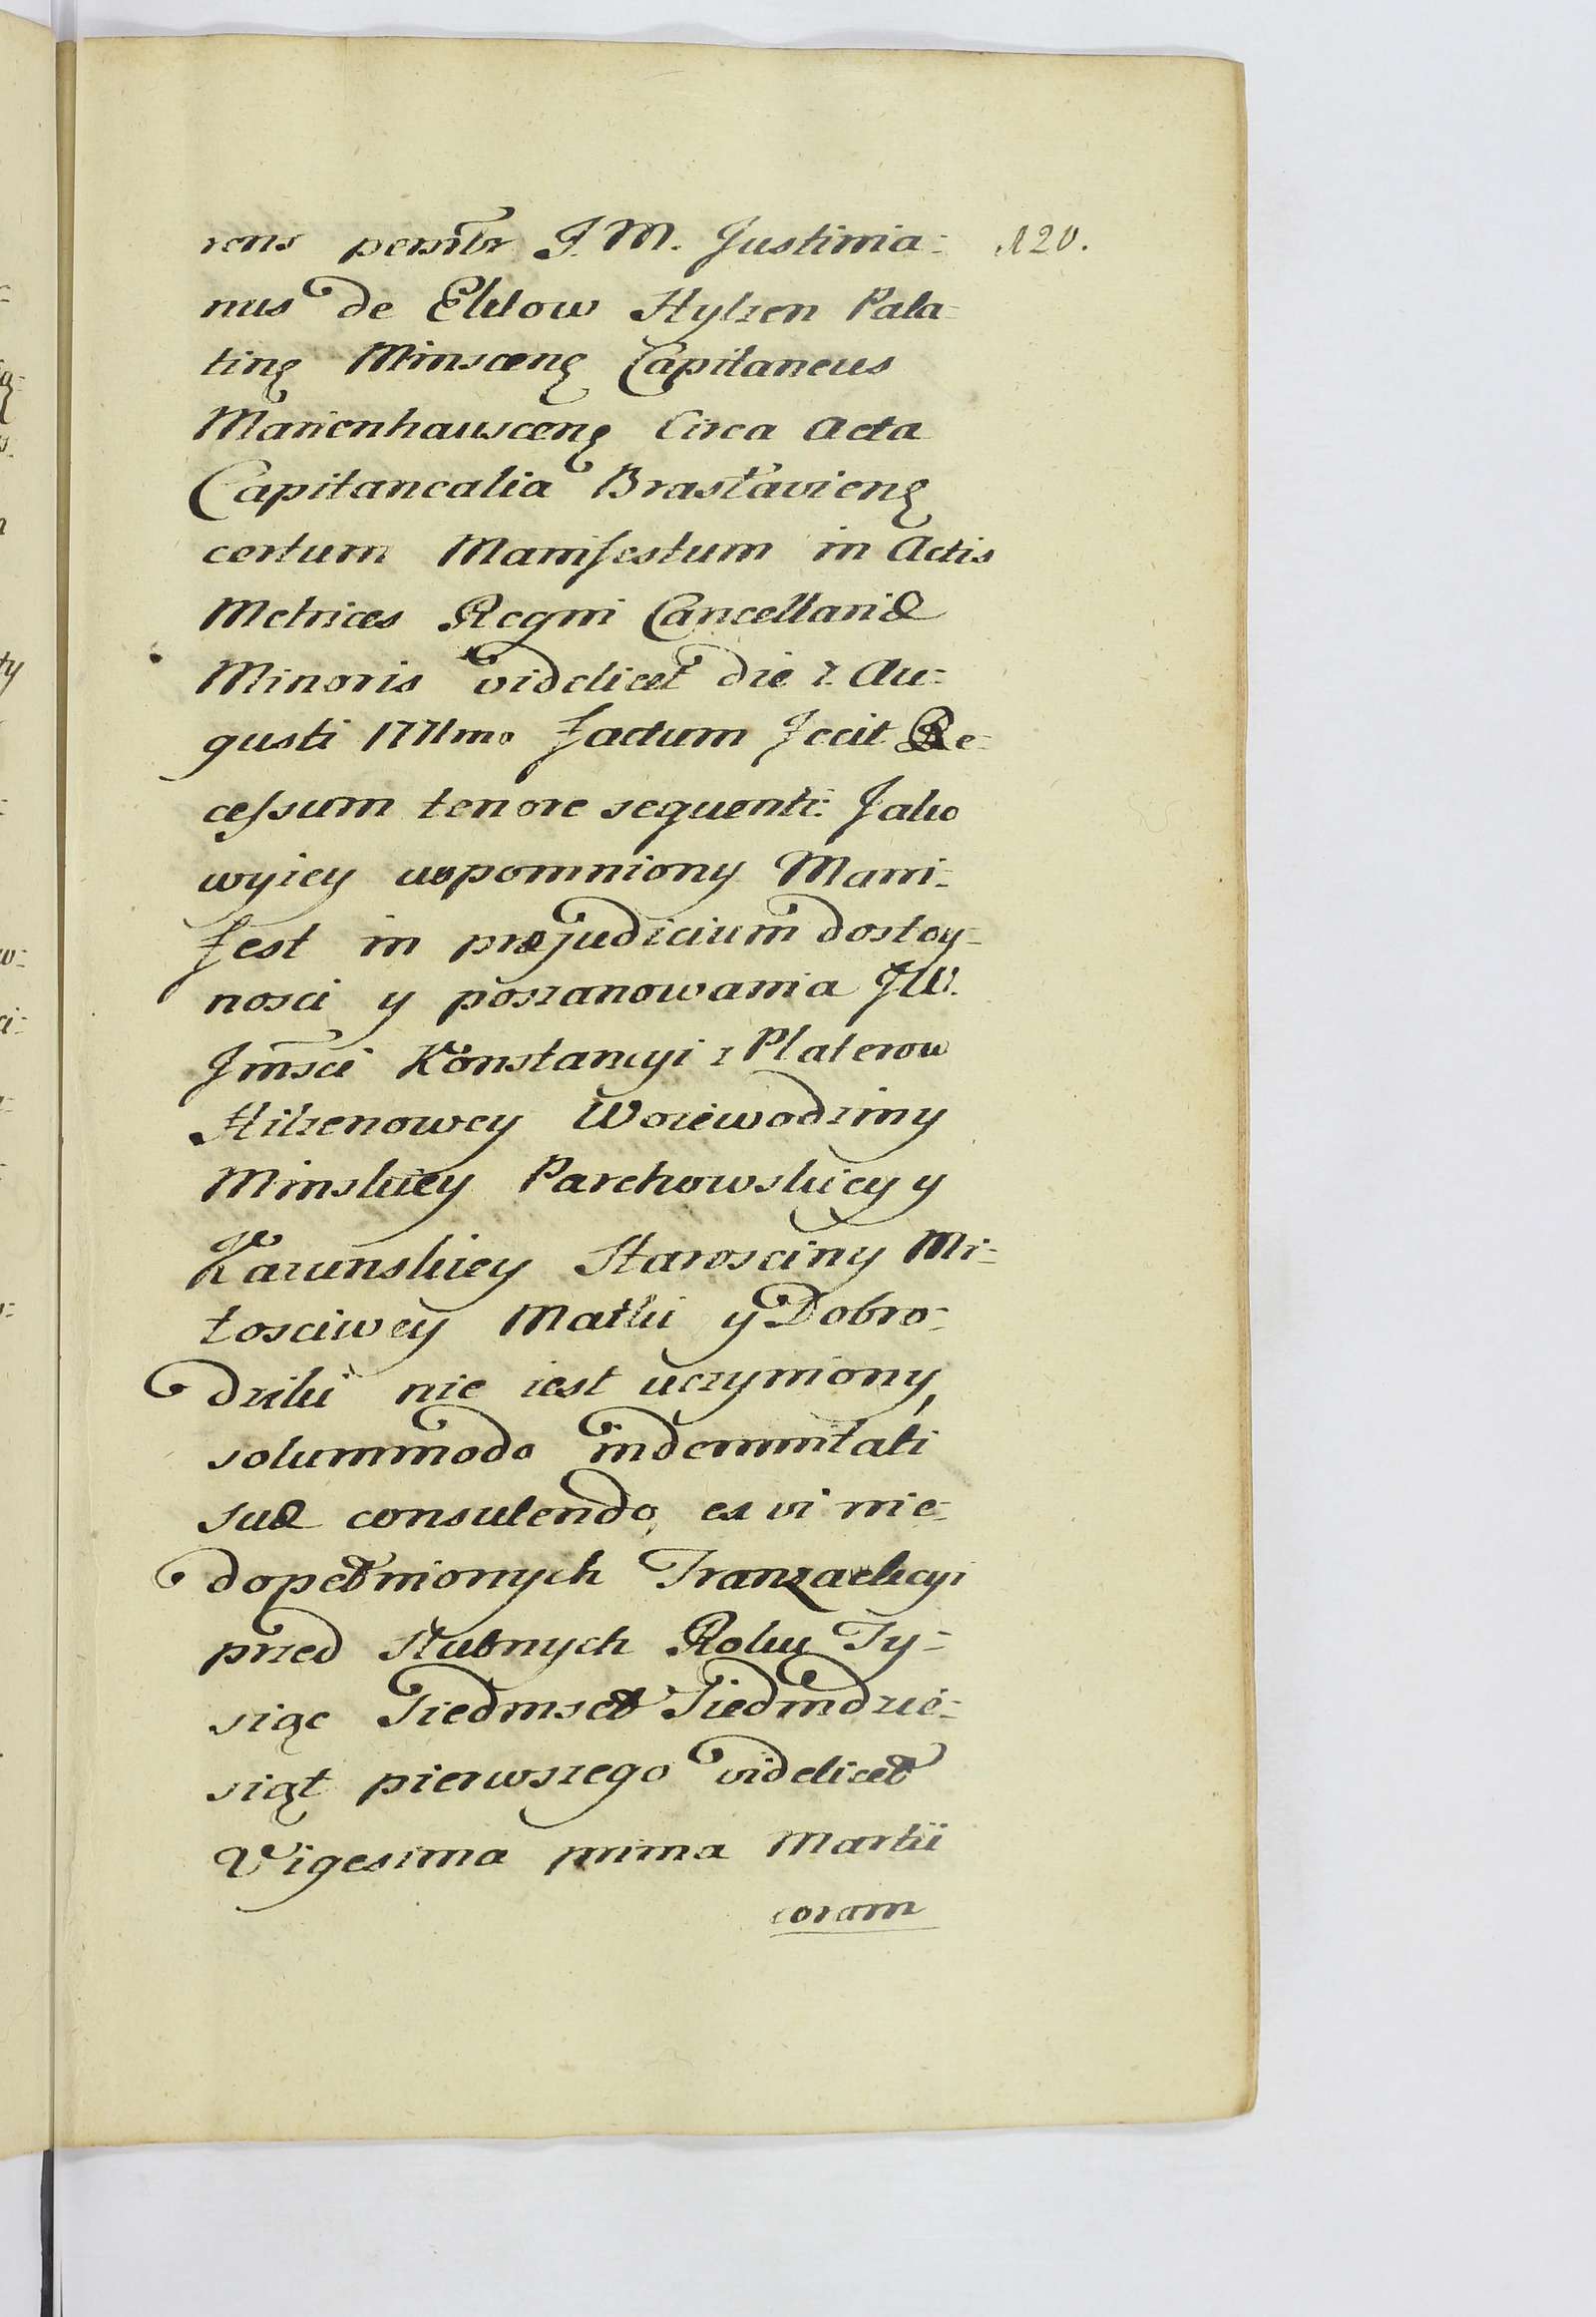 rens persnłr J. M. Justinia= 120.
nus de Eklow Hylzen Pala=
tinę Minscenę Capitaneus
Marienhauscenę Circa Acta
Capitanealia Brasłavienę
certum Manifestum in Actis
Metrices Regni Cancellariæ
Minoris videlicet die 2. Au=
gusti 1771mo factum fecit Re=
cessum tenore sequenti: Jako
wyiey wspomniony Mani=
fest in præjudicium dostoy=
nosci y poszanowania JW.
Jmsci Konstancyi z Platerow
Hilzenowey Woiewodziny
Minskiey Parchowskiey y
Kazunskiey Starosciny Mi=
łosciwey Matki y Dobro=
dziki nie iest uczyniony,
solummodo indemnitati
suæ consulendo, ex vi nie=
dopełnionych Tranzakcyi
przed słubnych Roku Ty=
siąc Siedmset Siedmdzie=
siąt pierwszego videlicet
Vigesima prima Martii
coram